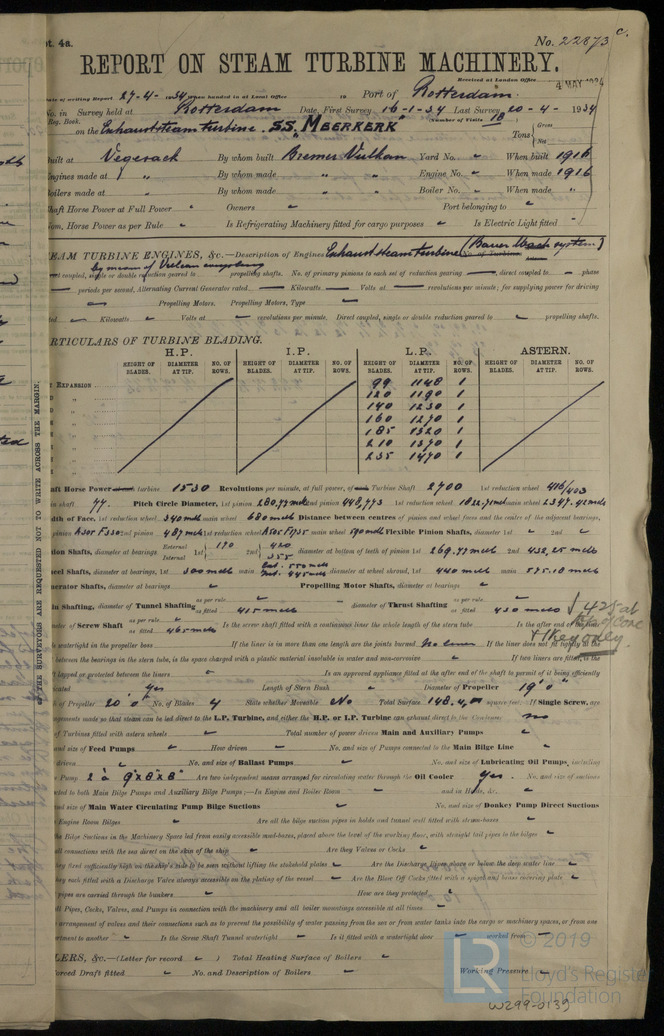 pt. 4a.
No. 22873 c.
REPORT ON STEAM TURBINE MACHINERY.
Received at London Office 4 MAY 1934
Date of writing Report 27-4-1934 When handed in at Local Office 19 Port of Rotterdam.
No. in Survey held at Rotterdam Date, First Survey 16-1-34 Last Survey 20-4-1934
Reg. Book. (Number of Visits 18)
on the Exhauststeamturbine S.S. "MEERKERK" Tons { Gross Net
Built at Vegesack By whom built Bremer Vulkan Yard No. When built 1916
Engines made at " By whom made " " Engine No. When made 1916
Boilers made at " By whom made " " Boiler No. When made "
Shaft Horse Power at Full Power Owners Port belonging to
Nom. Horse Power as per Rule Is Refrigerating Machinery fitted for cargo purposes Is Electric Light fitted
STEAM TURBINE ENGINES, &c.—Description of Engines Exhauststeamturbine (Bauer Wach system)
No. of Turbines
by means of Vulcan coupling
direct coupled, single or double reduction geared to propelling shafts. No. of primary pinions to each set of reduction gearing direct coupled to phase
periods per second, Alternating Current Generator rated Kilowatts Volts at revolutions per minute; for supplying power for driving
Propelling Motors. Propelling Motors, Type
rated Kilowatts Volts at revolutions per minute. Direct coupled, single or double reduction geared to propelling shafts.
PARTICULARS OF TURBINE BLADING.
H.P. I.P. L.P. ASTERN.
HEIGHT OF BLADES. DIAMETER AT TIP. NO. OF ROWS. HEIGHT OF BLADES. DIAMETER AT TIP. NO. OF ROWS. HEIGHT OF BLADES. DIAMETER AT TIP. NO. OF ROWS. HEIGHT OF BLADES. DIAMETER AT TIP. NO. OF ROWS.
EXPANSION 99 1148 1
" 120 1190 1
" 140 1230 1
" 160 1270 1
" 185 1320 1
" 210 1370 1
" 235 1470 1
Shaft Horse Power turbine 1530 Revolutions per minute, at full power, of Turbine Shaft 2700 1st reduction wheel 416/403
main shaft 77. Pitch Circle Diameter, 1st pinion 280,77 2nd pinion 448,773 1st reduction wheel main wheel 2347.42
Width of Face, 1st reduction wheel 340 main wheel 680 Distance between centres of pinion and wheel faces and the centre of the adjacent bearings,
2nd pinion 487 1st reduction wheel main wheel Flexible Pinion Shafts, diameter 1st 2nd
Pinion Shafts, diameter at bearings External 1st 170 2nd 420 diameter at bottom of teeth of pinion 1st 269.77 2nd 432.25
Internal 355
Wheel Shafts, diameter at bearings, 1st 300 main diameter at wheel shroud, 1st 440 main 575.10
Generator Shafts, diameter at bearings Propelling Motor Shafts, diameter at bearings
Main Shafting, diameter of Tunnel Shafting as per rule as fitted 415 diameter of Thrust Shafting as per rule as fitted 430
diameter of Screw Shaft as per rule as fitted 465 Is the screw shaft fitted with a continuous liner the whole length of the screw tube Is the after end of the liner
watertight in the propeller boss If the liner is in more than one length are the joints burned no liner If the liner does not fit tightly at the
between the bearings in the stern tube, is the space charged with a plastic material insoluble in water and non-corrosive If two liners are fitted, is the
lapped or protected between the liners Is an approved appliance fitted at the after end of the shaft to permit of it being efficiently
Yes Length of Stern Bush Diameter of Propeller 19' 0"
of Propeller 20' 0" No. of Blades 4 State whether Moveable No Total Surface 148.4 square feet. If Single Screw, are
arrangements made so that steam can be led direct to the L.P. Turbine, and either the H.P. or I.P. Turbine can exhaust direct to the Condenser no
of Turbines fitted with astern wheels Total number of power driven Main and Auxiliary Pumps
and size of Feed Pumps How driven No. and size of Pumps connected to the Main Bilge Line
No. and size of Ballast Pumps No. and size of Lubricating Oil Pumps, including
Pump 2 à 9"x8"x8" Are two independent means arranged for circulating water through the Oil Cooler Yes. No. and size of suctions
to both Main Bilge Pumps and Auxiliary Bilge Pumps:—In Engine and Boiler Room and in Holds, &c.
and size of Main Water Circulating Pump Bilge Suctions No. and size of Donkey Pump Direct Suctions
Engine Room Bilges Are all the bilge suction pipes in holds and tunnel well fitted with strum-boxes
the Bilge Suctions in the Machinery Space led from easily accessible mud-boxes, placed above the level of the working floor, with straight tail pipes to the bilges
all connections with the sea direct on the skin of the ship Are they Valves or Cocks
they fixed sufficiently high on the ship's side to be seen without lifting the stokehold plates Are the Discharge Pipes above or below the deep water line
they each fitted with a Discharge Valve always accessible on the plating of the vessel Are the Blow Off Cocks fitted with a spigot and brass covering plate
pipes are carried through the bunkers How are they protected
all Pipes, Cocks, Valves, and Pumps in connection with the machinery and all boiler mountings accessible at all times
arrangement of valves and their connections such as to prevent the possibility of water passing from the sea or from water tanks into the cargo or machinery spaces, or from one
compartment to another Is the Screw Shaft Tunnel watertight Is it fitted with a watertight door worked from
BOILERS, &c.—(Letter for record ) Total Heating Surface of Boilers
Forced Draft fitted No. and Description of Boilers Working Pressure
THE SURVEYORS ARE REQUESTED NOT TO WRITE ACROSS THE MARGIN.
LR
© 2019
Lloyd's Register
Foundation
W299-0139